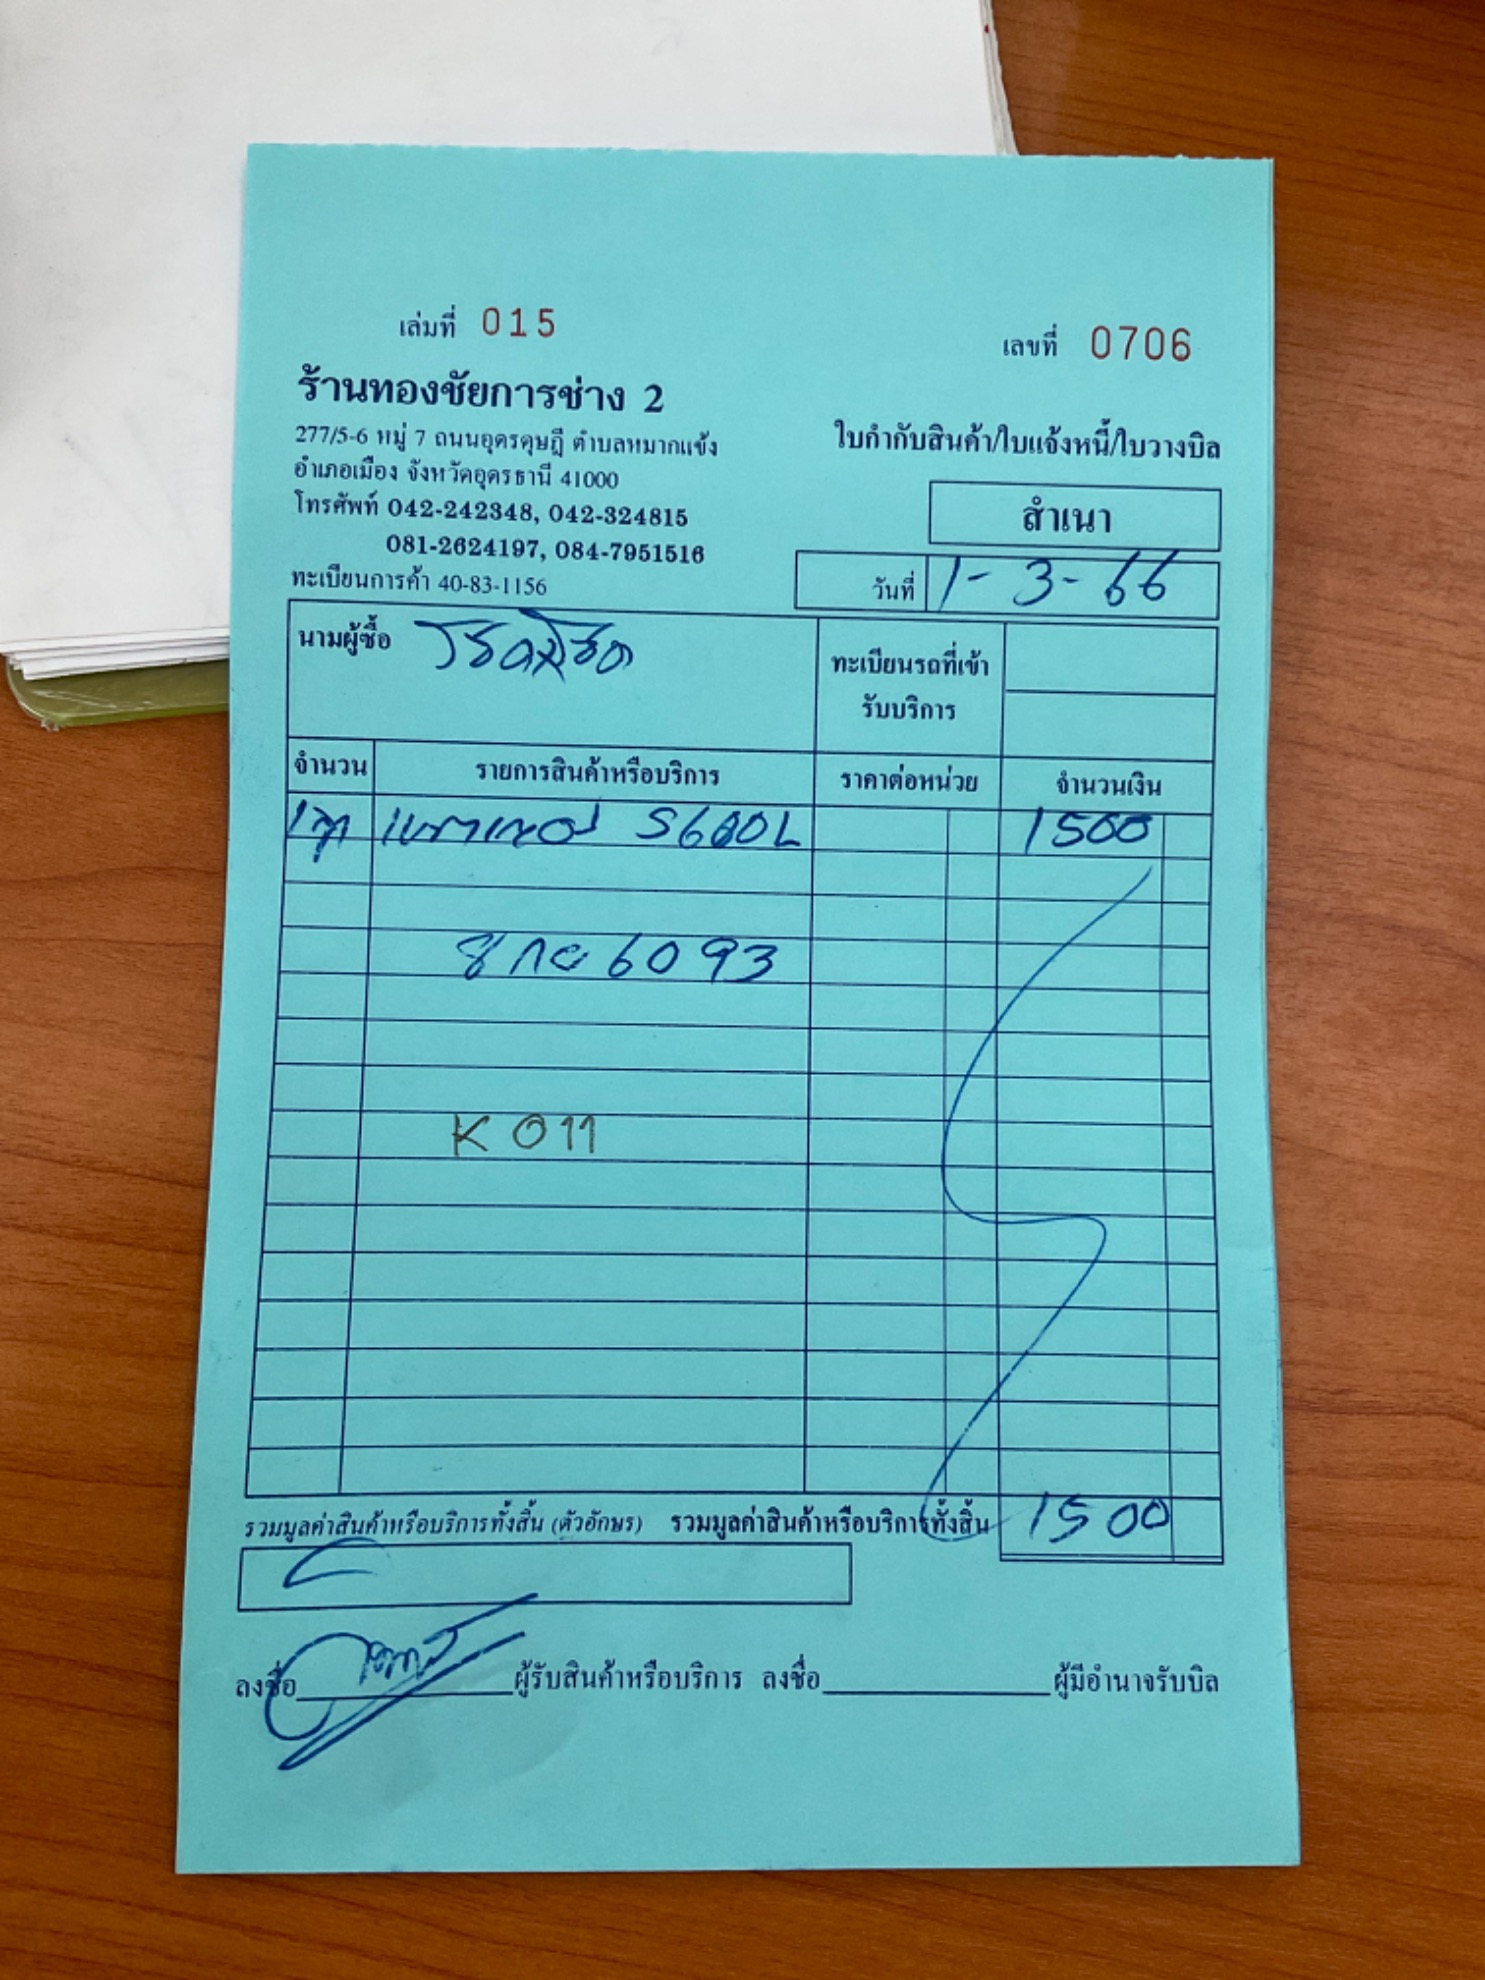 เล่มที่ 015
เลขที่ 0706
ร้านทองชัยการช่าง 2
277/5-6 หมู่ 7 ถนนอุดรดุษฎี ตำบลหมากแข้ง
อำเภอเมือง จังหวัดอุดรธานี 41000
โทรศัพท์ 042-242348, 042-324815
081-2624197, 084-7951516
ทะเบียนการค้า 40-83-1156
ใบกำกับสินค้า/ใบแจ้งหนี้/ใบวางบิล
สำเนา
วันที่ 1-3-66
นามผู้ซื้อ
ทะเบียนรถที่เข้า
รับบริการ
จำนวน รายการสินค้าหรือบริการ ราคาต่อหน่วย จำนวนเงิน
S600L 1500
6093
K 011
รวมมูลค่าสินค้าหรือบริการทั้งสิ้น (ตัวอักษร) รวมมูลค่าสินค้าหรือบริการทั้งสิ้น 1500
ลงชื่อ ผู้รับสินค้าหรือบริการ ลงชื่อ ผู้มีอำนาจรับบิล